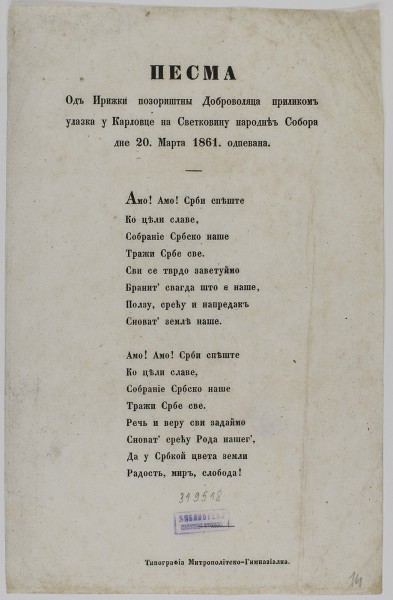 ПЕСМА
Одъ Ирижки позориштны Доброволяца приликомъ
улазка у Карловце на Светковину народнѣъ Собора
дне 20. Марта 1861. одпевана.
Амо! Амо! Срби спѣште
Ко цѣли славе,
Собраніе Србско наше
Тражи Србе све.
Сви се тврдо заветуймо
Бранит' свагда што є наше,
Ползу, срећу и напредакъ
Сноват' землѣ наше.
Амо! Амо! Срби спѣште
Ко цѣли славе,
Собраніе Србско наше
Тражи Србе све.
Речь и веру сви задаймо
Сноват' срећу Рода нашег',
Да у Србкой цвета земли
Радость, миръ, слобода!
319518
Типографіа Митрополітско-Гимназіална.
14